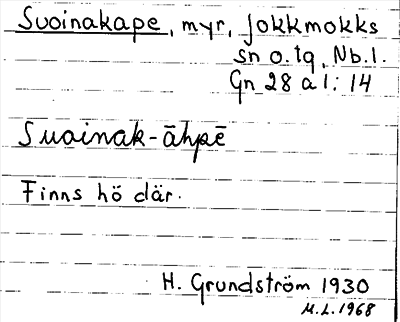 Suoinakape, myr, Jokkmokks
sn o. tg, Nb.l.
Gn 28 a l: 14
Suoinak-āhpē
Finns hö där.
H. Grundström 1930
M.L. 1968